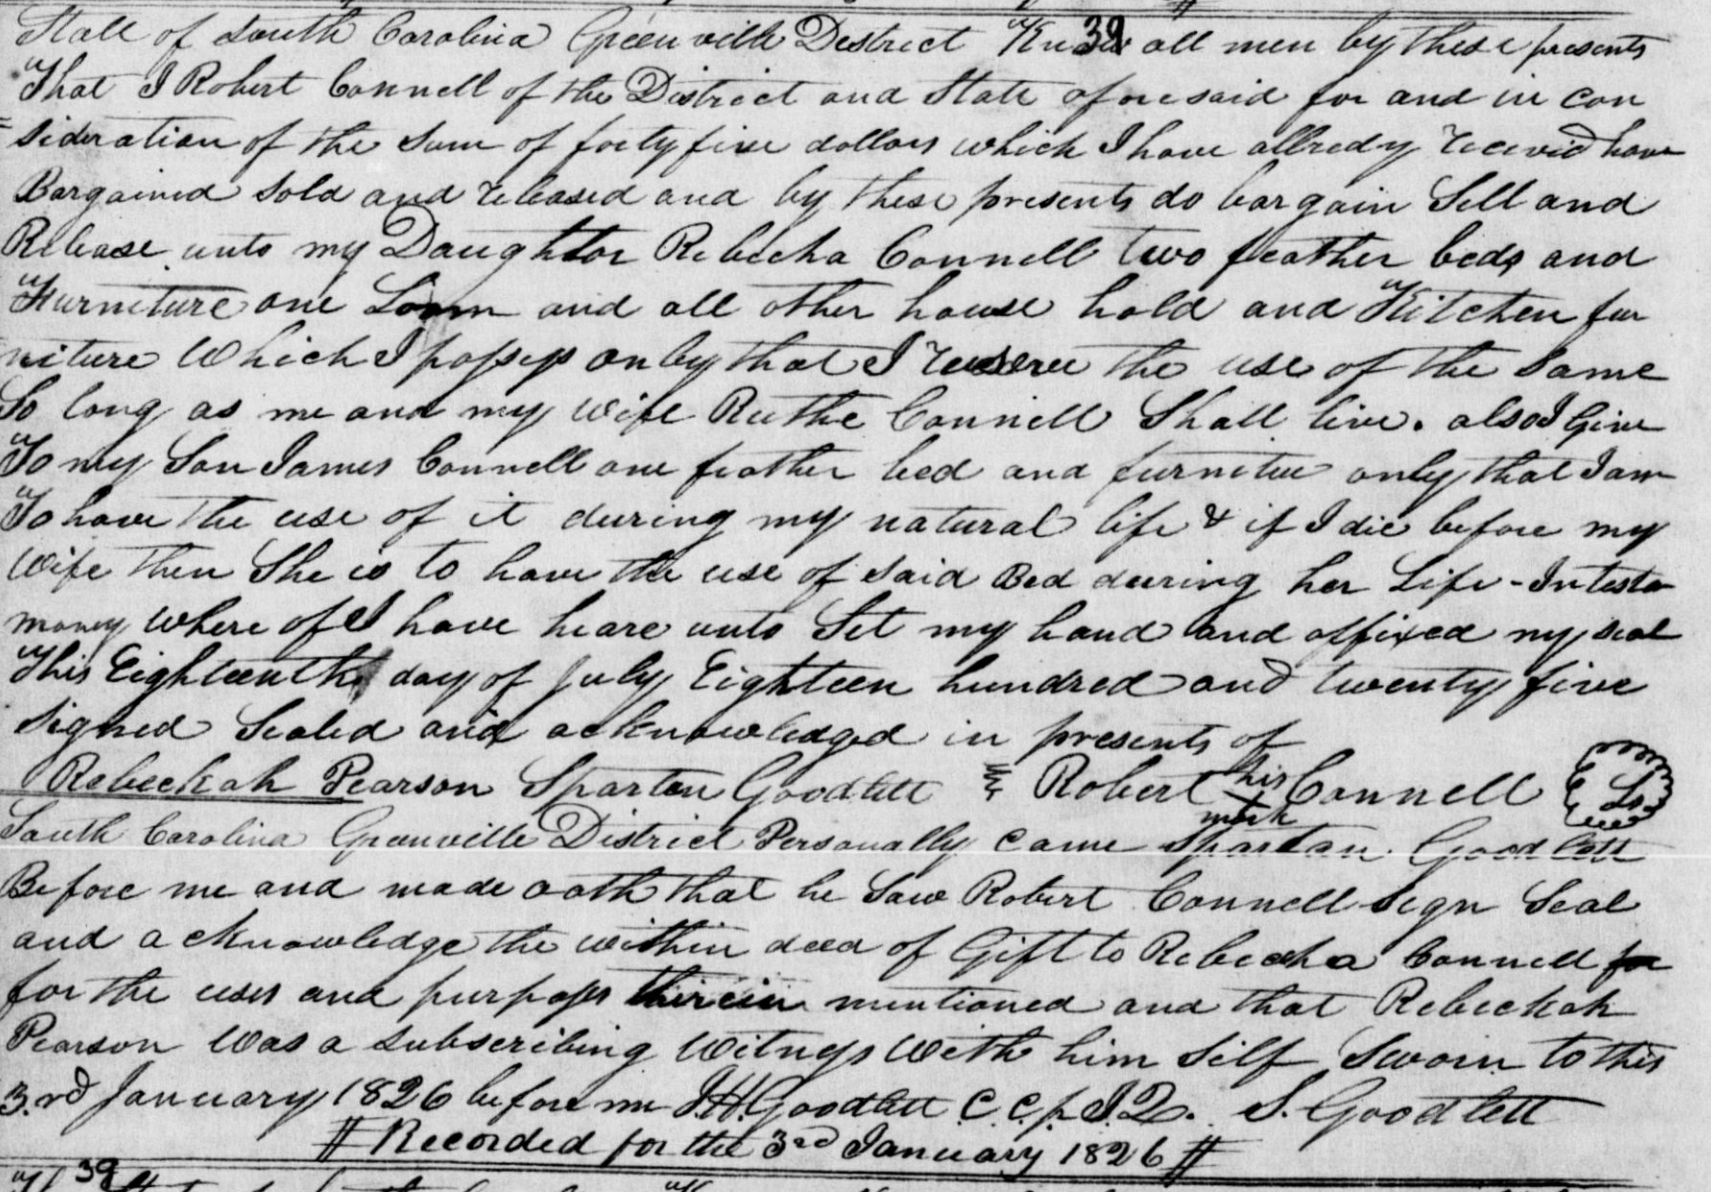 State of South Carolina Greenville District Know all men by these presents
That I Robert Connell of the District and State aforesaid for and in con
sideration of the Sum of forty five dollars which I have allredy recevid have
Bargained Sold and released and by these presents do bargain Sell and
Release unto my Daughter Rebecka Connell two feather beds and
Furniture one Loom and all other house hold and Kitchen fur
niture Which I possess only that I reserve the use of the Same
So long as me and my wife Ruthe Connell Shall live. also I Give
To my Son James Connell one feather bed and furniture only that I am
To have the use of it during my natural life & if I die before my
Wife then She is to have the use of said Bed during her Life - In testa
mony where of I have heare unto Set my hand and affixed my seal
This Eighteenth day of July Eighteen hundred and twenty five
Signed Sealed and acknowledged in presents of
Rebeckah Pearson Spartan Goodlett Robert his Connell LS
mark
South Carolina Greenville District Personally came Spartan Goodlett
Before me and made oath that he Saw Robert Connell Sign Seal
and acknowledge the within deed of Gift to Rebecka Connell for
for the uses and purposs therein mentioned and that Rebeckah
Pearson Was a Subscribing Witness With him Self Sworn to this
3.rd January 1826 before me J.H. Goodlett C.C.p.J.Q. S. Goodlett
# Recorded for the 3rd January 1826 #
39